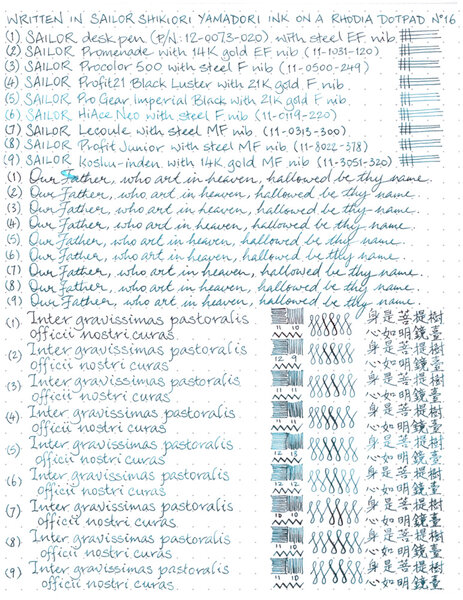 WRITTEN IN SAILOR SHIKIORI YAMADORI INK ON A RHODIA DOTPAD Nº16
(1) SAILOR desk pen (P/N: 12-0073-020) with EF nib
(2) SAILOR Promenade with 14K gold EF nib (11-1031-120)
(3) SAILOR Procolor 500 with steel F nib (11-0500-249)
(4) SAILOR Profit21 Black Luster with 21K gold F nib
(5) SAILOR Pro Gear Imperial Black with 21K gold F nib
(6) SAILOR HiAce Neo with steel F nib (11-0119-220)
(7) SAILOR Lecoule with steel MF nib (11-0315-300)
(8) SAILOR Profit Junior with steel MF nib (11-8022-378)
(9) SAILOR Koshu-inden with 14K gold MF nib (11-3051-320)
(1) Our Father, who art in heaven, hallowed be thy name.
(2) Our Father, who art in heaven, hallowed be thy name.
(3) Our Father, who art in heaven, hallowed be thy name.
(4) Our Father, who art in heaven, hallowed be thy name.
(5) Our Father, who art in heaven, hallowed be thy name.
(6) Our Father, who art in heaven, hallowed be thy name.
(7) Our Father, who art in heaven, hallowed be thy name.
(8) Our Father, who art in heaven, hallowed be thy name.
(9) Our Father, who art in heaven, hallowed be thy name.
(1) Inter gravissimas pastoralis 身是菩提樹
officii nostri curas 11 10 心如明鏡臺
(2) Inter gravissimas pastoralis 身是菩提樹
officii nostri curas 12 9 心如明鏡臺
(3) Inter gravissimas pastoralis 身是菩提樹
officii nostri curas 11 11 心如明鏡臺
(4) Inter gravissimas pastoralis 身是菩提樹
officii nostri curas 11 11 心如明鏡臺
(5) Inter gravissimas pastoralis 身是菩提樹
officii nostri curas 心如明鏡臺
(6) Inter gravissimas pastoralis 身是菩提樹
officii nostri curas 12 12 心如明鏡臺
(7) Inter gravissimas pastoralis 身是菩提樹
officii nostri curas 10 10 心如明鏡臺
(8) Inter gravissimas pastoralis 身是菩提樹
officii nostri curas 心如明鏡臺
(9) Inter gravissimas pastoralis 身是菩提樹
officii nostri curas. 11 10 心如明鏡臺